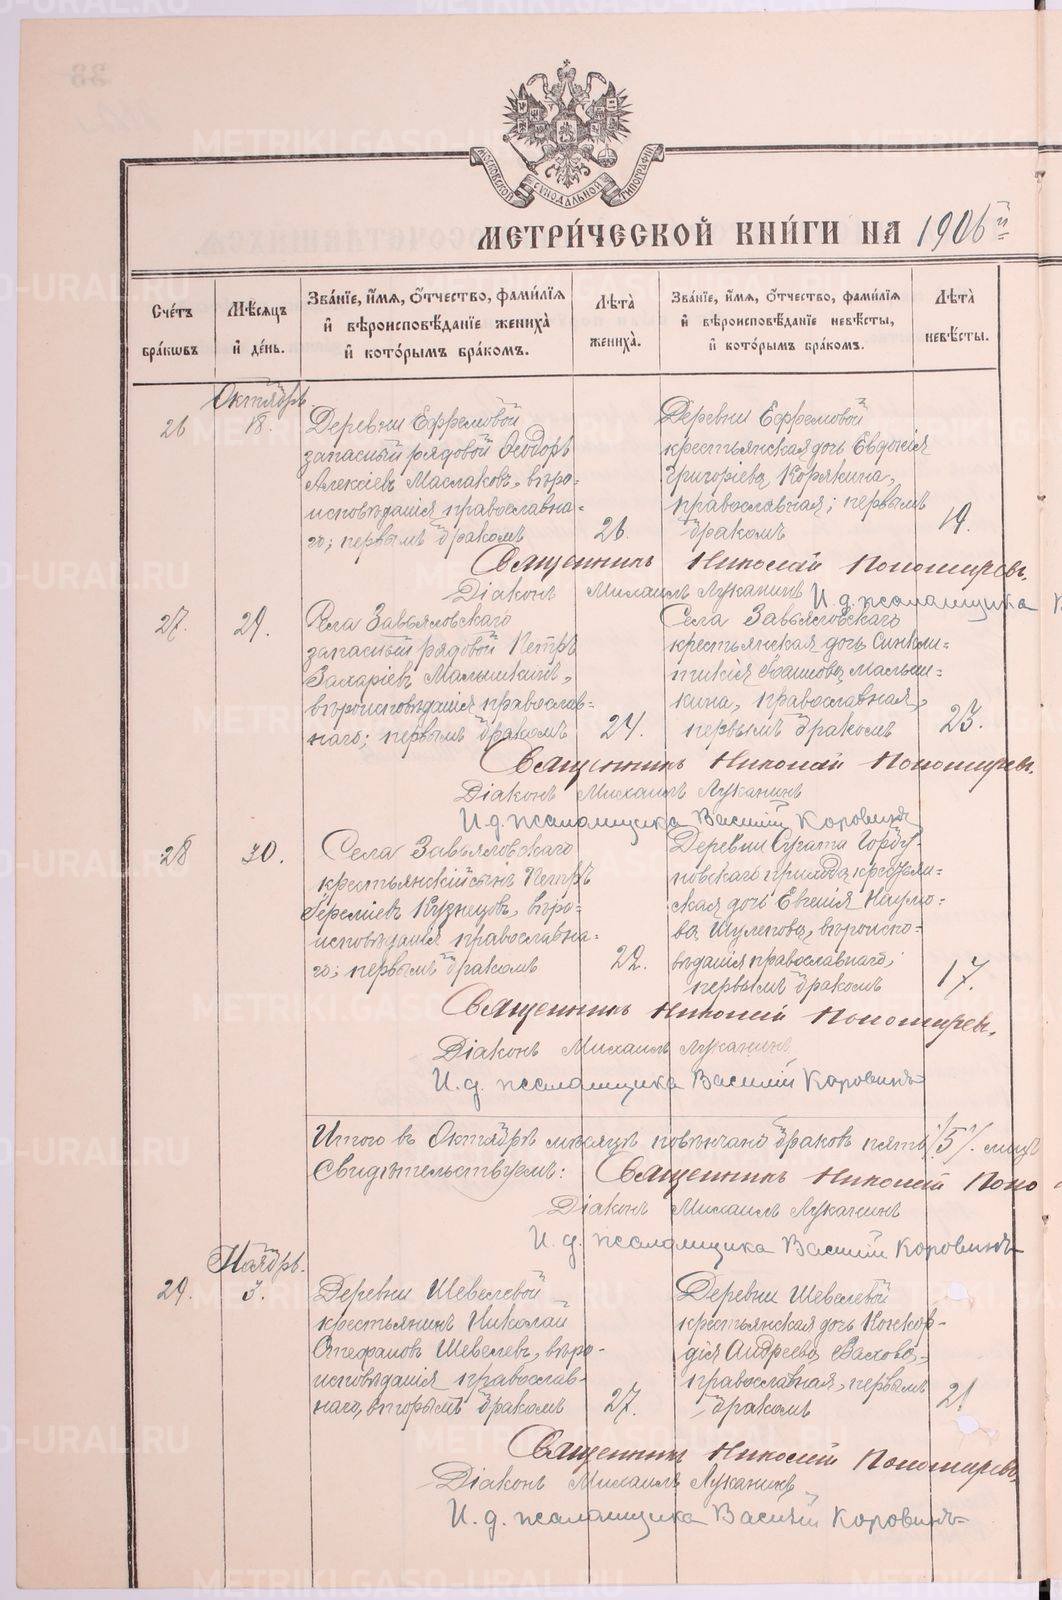 МОСКОВСКОЙ СѴНОДАЛЬНОЙ ТИПОГРАФІИ
МЕТРИ́ЧЕСКОЙ КНИ́ГИ НА 1906й
Сче́тъ бра́кωвъ
Мѣ́сяцъ и҆ де́нь.
Зва́нїе, и҆́мя, ѻ҆́тчество, фами́лїя и҆ вѣроисповѣ́данїе жениха̀ и҆ кото́рымъ бра́комъ.
Лѣ́та жениха̀.
Зва́нїе, и҆́мя, ѻ҆́тчество, фами́лїя и҆ вѣроисповѣ́данїе невѣ́сты, и҆ кото́рымъ бра́комъ.
Лѣ́та невѣ́сты.
Октябрь.
26
18.
Деревни Ефремовой
запасный рядовой Ѳеодоръ
Алексіевъ Маслаковъ, вѣро-
исповѣданія православна-
го; первымъ бракомъ
26.
Деревни Ефремовой
крестьянская дочь Евдокія
Григоріева Корякина,
православная; первымъ
бракомъ
19.
Священникъ Николай Пономаревъ.
Діаконъ Михаилъ Луканинъ И. д. псаломщика
27.
29.
Села Завьяловскаго
запасный рядовой Петръ
Захаріевъ Малышкинъ,
вѣроисповѣданія православ-
наго; первымъ бракомъ
24.
Села Завьяловскаго
крестьянская дочь Синкли-
тикія Іоаннова Малыш-
кина, православная,
первымъ бракомъ
23.
Священникъ Николай Пономаревъ.
Діаконъ Михаилъ Луканинъ
И. д. псаломщика Василій Коровинъ
28
30.
Села Завьяловскаго
крестьянскій сынъ Петръ
Іереміевъ Кузнецовъ, вѣро-
исповѣданія православна-
го; первымъ бракомъ
22.
Деревни Сугата Горбу-
новскаго прихода крестьян-
ская дочь Евгенія Наумо-
ва Шулепова, вѣроиспо-
вѣданія православнаго;
первымъ бракомъ
17.
Священникъ Николай Пономаревъ.
Діаконъ Михаилъ Луканинъ
И. д. псаломщика Василій Коровинъ
Итого въ Октябрѣ мѣсяцѣ повѣнчано браковъ пять /5/.
Свидѣтельствуемъ: Священникъ Николай Поно
Діаконъ Михаилъ Луканинъ
И. д. псаломщика Василій Коровинъ
Ноябрь.
29.
3.
Деревни Шевелевой
крестьянинъ Николай
Стефановъ Шевелевъ, вѣро-
исповѣданія православ-
наго, вторымъ бракомъ
27.
Деревни Шевелевой
крестьянская дочь Конкор-
дія Андреева Вахова,
православная, первымъ
бракомъ
21
Священникъ Николай Пономаревъ.
Діаконъ Михаилъ Луканинъ
И. д. псаломщика Василій Коровинъ
METRIKI.GASO-URAL.RU